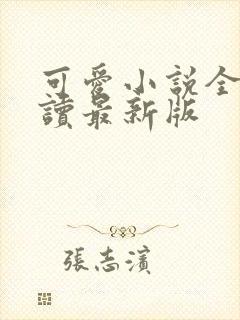 可愛小說全
讀最新版
張志濱